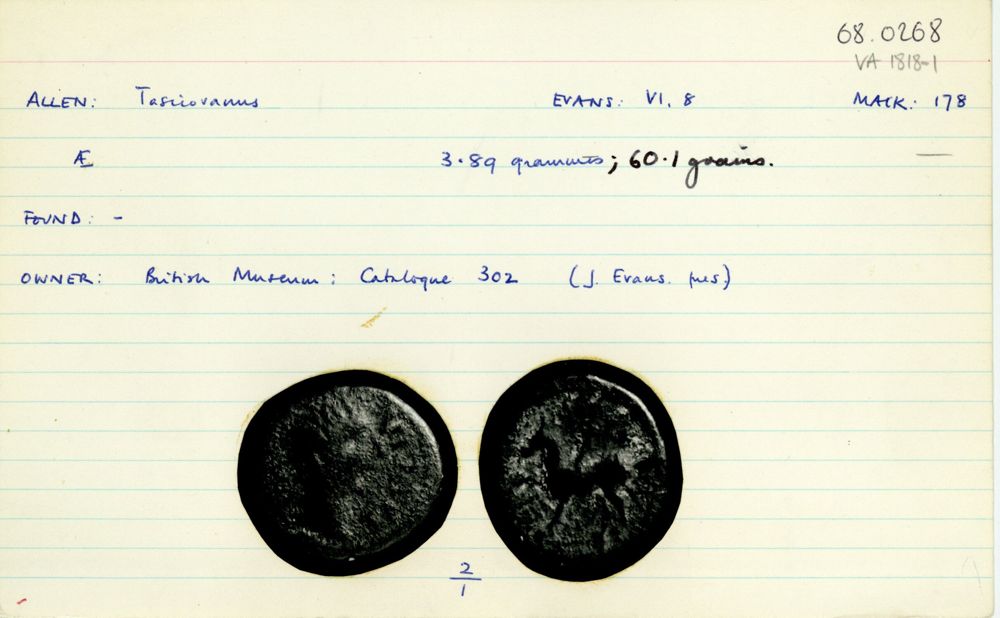 68.0268
VA 1818-1
ALLEN: Tasciovanus EVANS: VI, 8 MACK: 178
Æ 3.89 grammes; 60.1 grains. —
FOUND: -
OWNER: British Museum: Catalogue 302 (J. Evans. pres.)
2
1